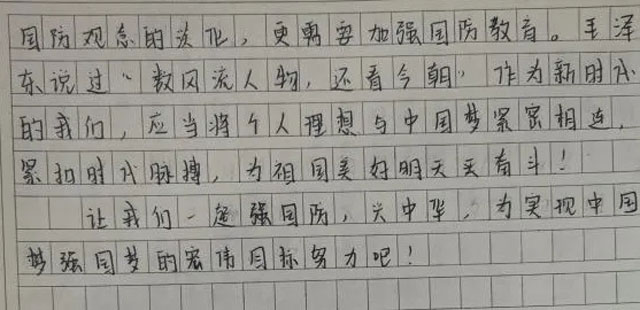 国防观念的淡化，更需要加强国防教育。毛泽
东说过“数风流人物，还看今朝”作为新时代
的我们，应当将个人理想与中国梦紧密相连，
紧扣时代脉搏，为祖国美好明天奋斗！
让我们一起强国防，兴中华，为实现中国
梦强国梦的宏伟目标努力吧！